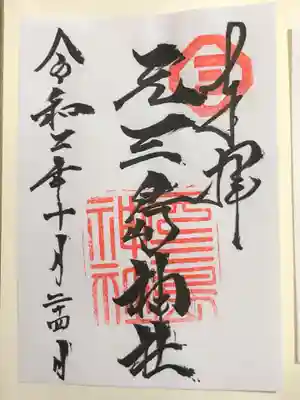 奉拝
三
元三島神社
令和二年十月二十四日